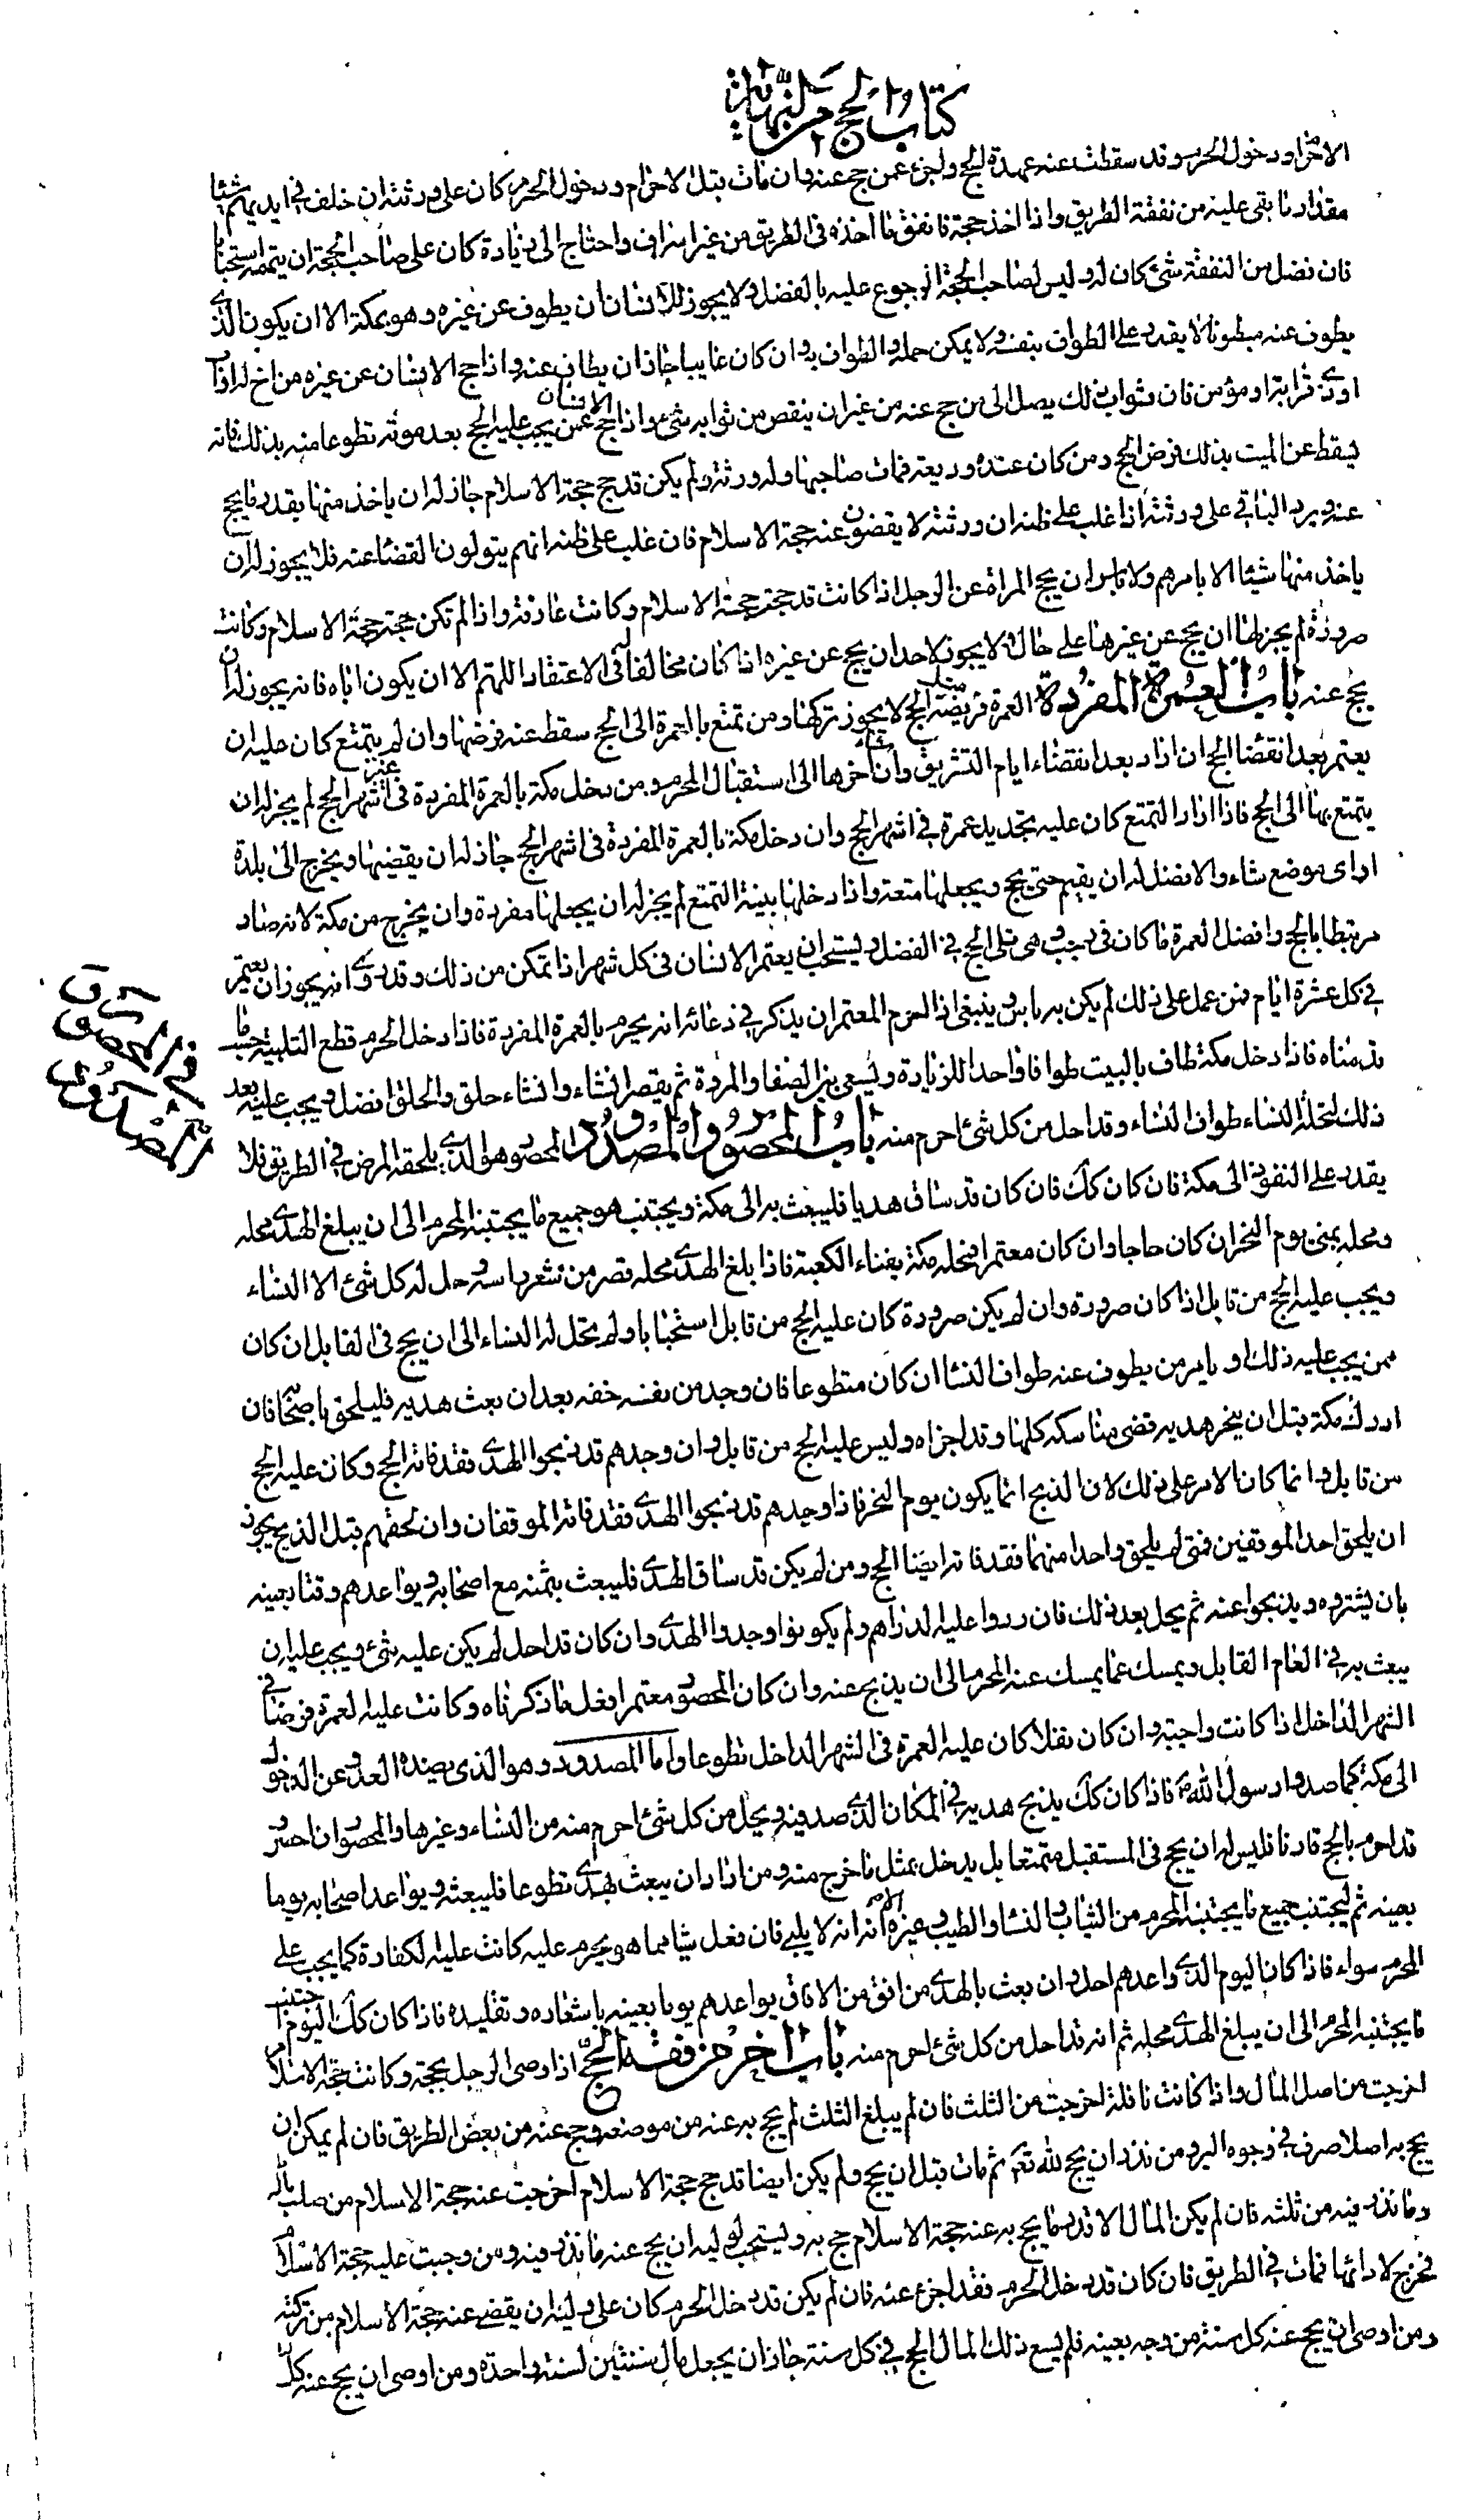 كتاب الحج من النهاية
الاحرام ودخول الحرم وقد سقطت عنه عهدة الحج واجزء عمن حج عنه وان مات قبل الاحرام ودخول الحرم كان على ورثته ان خلف في ايديهم شيئا
مقدار ما بقي عليه من نفقة الطريق واذا اخذ حجة فانفق ما اخذه في الطريق من غير اسراف واحتاج الى زيادة كان على صاحب الحجة ان يتممه استحبابا
فان فضل من النفقة شئ كان له وليس لصاحب الحجة الرجوع عليه بالفضل ولا يجوز للانسان ان يطوف عن غيره وهو بمكة الا ان يكون الذي
يطوف عنه مبطونا لا يقدر على الطواف بنفسه ولا يمكن حمله والطواف به وان كان غايبا جاز ان يطاف عنه واذا حج الانسان عن غيره من اخ له او اب
او ذي قرابة او مؤمن فان ثواب ذلك يصل الى من حج عنه من غير ان ينقص من ثوابه شئ واذا حج الانسان عمن يجب عليه الحج بعد موته تطوعا منه بذلك فانه
يسقط عن الميت بذلك فرض الحج ومن كان عنده وديعة فمات صاحبها وله ورثة ولم يكن قد حج حجة الاسلام جاز له ان ياخذ منها بقدر ما يحج
عنه ويرد الباقي على ورثته اذا غلب على ظنه ان ورثته لا يقضون عنه حجة الاسلام فان غلب على ظنه انهم يتولون القضاء عنه فلا يجوز له ان
ياخذ منها شيئا الا بامرهم ولا باس ان يحج المراة عن الرجل اذا كانت قد حجت حجة الاسلام وكانت عارفة واذا لم تكن حجت حجة الاسلام وكانت
صرورة لم يجز لها ان يحج عن غيرها على حال ولا يجوز لاحد ان يحج عن غيره اذا كان مخالفا له في الاعتقاد اللهم الا ان يكون اباه فانه يجوز له ان
يحج عنه باب العمرة المفردة العمرة فريضة مثل الحج لا يجوز تركها ومن تمتع بالعمرة الى الحج سقط عنه فرضها وان لم يتمتع كان عليه ان
يعتمر بعد انقضاء الحج ان اراد بعد انقضاء ايام التشريق وان شاء اخرها الى استقبال المحرم ومن دخل مكة بالعمرة المفردة في غير اشهر الحج لم يجز له ان
يتمتع بها الى الحج فاذا اراد التمتع كان عليه تجديد عمرة في اشهر الحج وان دخل مكة بالعمرة المفردة في اشهر الحج جاز له ان يقضيها ويخرج الى بلدة
او اى موضع شاء والافضل له ان يقيم حتى يحج ويجعلها متعة واذا دخلها بنية التمتع لم يجز له ان يجعلها مفردة وان يخرج من مكة لانه صار
مرتبطا بالحج وافضل العمرة ما كان في رجب وهي تلى الحج في الفضل ويستحب ان يعتمر الانسان في كل شهر اذا تمكن من ذلك وقد روي انه يجوز ان يعتمر
في كل عشرة ايام فمن عمل على ذلك لم يكن به باس وينبغي اذا احرم المعتمر ان يذكر في دعائه انه يحرم بالعمرة المفردة فاذا دخل الحرم قطع التلبية حسب ما
قدمناه فاذا دخل مكة طاف بالبيت طوافا واحدا للزيارة ويسعى بين الصفا والمروة ثم يقصر ان شاء وان شاء حلق والحلق افضل ويجب عليه بعد
ذلك لتحلة النساء طواف النساء وقد احل من كل شئ احرم منه باب المحصور والمصدود المحصور هو الذي يلحقه المرض في الطريق فلا
يقدر على النفوذ الى مكة فان كان كك فان كان قد ساق هديا فليبعث به الى مكة ويجتنب هو جميع ما يجتنبه المحرم الى ان يبلغ الهدي محله
ومحله بمنى يوم النحر ان كان حاجا وان كان معتمرا فمحله مكة بفناء الكعبة فاذا بلغ الهدي محله قصر من شعر راسه وحل له كل شئ الا النساء
ويجب عليه الحج من قابل اذا كان صرورة وان لم يكن صرورة كان عليه الحج من قابل استحبابا ولم تحل له النساء الى ان يحج في القابل ان كان
ممن يجب عليه ذلك او يامر من يطوف عنه طواف النساء ان كان متطوعا فان وجد من نفسه خفه بعد ان بعث هديه فليلحق باصحابه فان
ادرك مكة قبل ان ينحر هديه قضى مناسكه كلها وقد اجزاه وليس عليه الحج من قابل وان وجدهم قد ذبحوا الهدي فقد فاته الحج وكان عليه الحج
من قابل وانما كان الامر على ذلك لان الذبح انما يكون يوم النحر فاذا وجدهم قد ذبحوا الهدي فقد فاته الموقفان وان لحقهم قبل الذبح يجوز
ان يلحق احد الموقفين فمتى لم يلحق واحدا منهما فقد فاته ايضا الحج ومن لم يكن قد ساق الهدي فليبعث بثمنه مع اصحابه ويواعدهم وقتا بعينه
بان يشتروه ويذبحوا عنه ثم يحل بعد ذلك فان ردوا عليه الدراهم ولم يكونوا وجدوا الهدي وان كان قد احل لم يكن عليه شئ ويجب عليه ان
يبعث به في العام القابل ويمسك عما يمسك عنه المحرم الى ان يذبح عنه وان كان المحصور معتمرا فعل ما ذكرناه وكانت عليه العمرة فرضا في
الشهر الداخل اذا كانت واجبة وان كان نفلا كان عليه العمرة في الشهر الداخل تطوعا واما المصدود وهو الذي يصده العدو عن الدخول
الى مكة كما صدوا رسول الله ص فاذا كان كك يذبح هديه في المكان الذي صد فيه ويحل من كل شئ احرم منه من النساء وغيرها والمحصور ان احصر
قد احرم بالحج قارنا فليس له ان يحج في المستقبل متمتعا بل يدخل بمثل ما خرج منه ومن اراد ان يبعث بهدي تطوعا فليبعثه ويواعد اصحابه يوما
بعينه ثم ليجتنب جميع ما يجتنبه المحرم من الثياب والنساء والطيب وغيره الا انه لا يلبي فان فعل شيئا مما هو يحرم عليه كانت عليه الكفارة كما يجب على
المحرم سواء فاذا كان اليوم الذي واعدهم احل وان بعث بالهدي من افق من الافاق يواعدهم يوما بعينه باشعاره وتقليده فاذا كان كك اليوم اجتنب
ما يجتنبه المحرم الى ان يبلغ الهدي محله ثم انه قد احل من كل شئ احرم منه باب اخر من فقه الحج اذا اوصى الرجل بحجة وكانت حجة الاسلام
اخرجت من اصل المال واذا كانت نافلة اخرجت من الثلث فان لم يبلغ الثلث لم يحج به عنه من موضعه وحج عنه من بعض الطريق فان لم يمكن ان
يحج به اصلا صرف في وجوه البر ومن نذر ان يحج لله تعم ثم مات قبل ان يحج ولم يكن ايضا قد حج حجة الاسلام اخرجت عنه حجة الاسلام من صلب ماله
وما نذر فيه من ثلثه فان لم يكن المال الا قدر ما يحج به عنه حجة الاسلام حج به ويستحب لوليه ان يحج عنه ما نذر فيه ومن وجبت عليه حجة الاسلام
فخرج لادائها فمات في الطريق فان كان قد دخل الحرم فقد اجزء عنه فان لم يكن قد دخل الحرم كان على وليه ان يقضي عنه حجة الاسلام من تركته
ومن اوصى ان يحج عنه كل سنة من وجه بعينه فلم يسع ذلك المال الحج في كل سنة جاز ان يجعل مال سنتين لسنة واحدة ومن اوصى ان يحج عنه كل
فرق
المحصور
المصدود